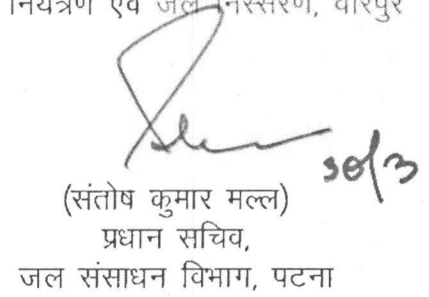 नियंत्रण एवं जल निस्सरण, वीरपुर
30/3
(संतोष कुमार मल्ल)
प्रधान सचिव,
जल संसाधन विभाग, पटना